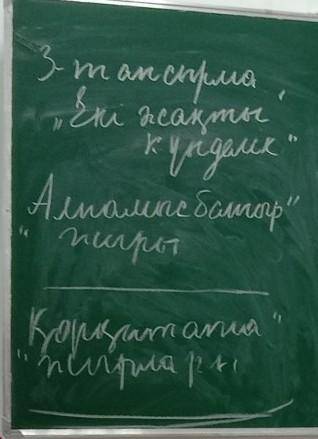 3-тапсырма
„Екі жақты
күнделік"
Алпамыс батыр"
" жыры
Қорқыт ата"
" жырлары